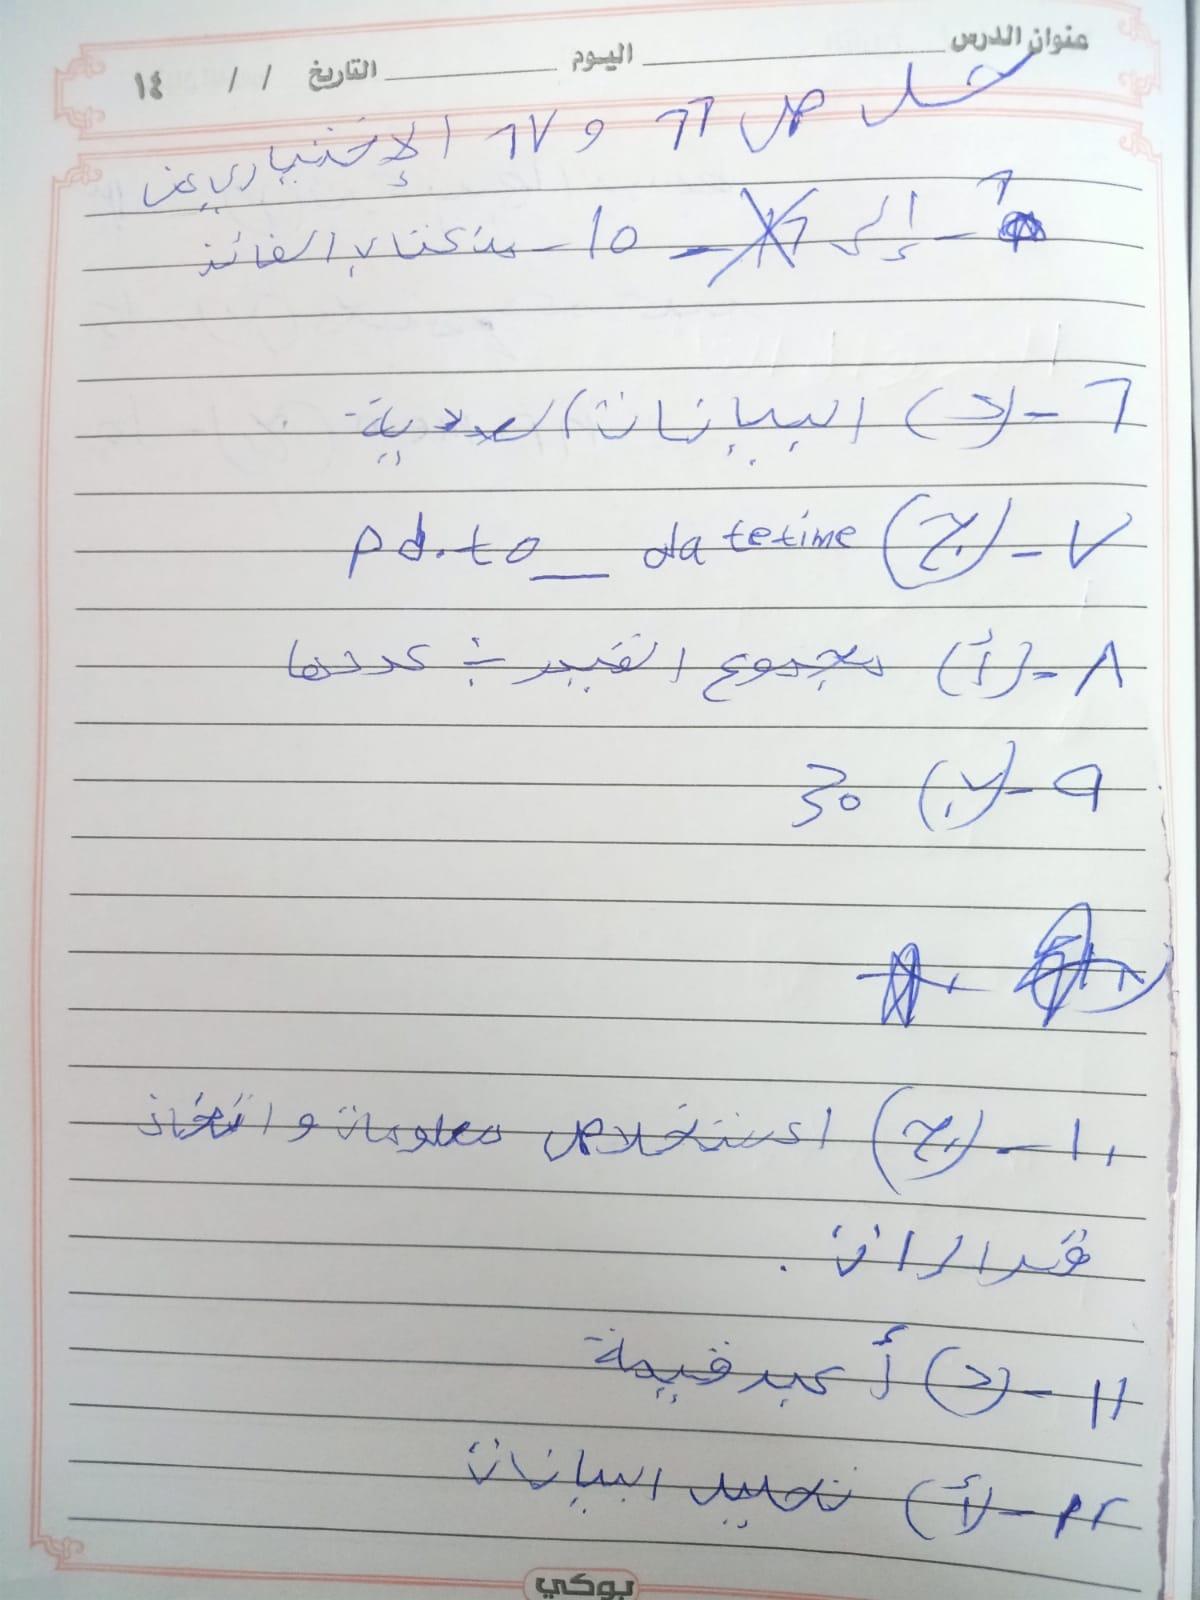 عنوان الدرس ______ اليوم ______ التاريخ / / ١٤
حل ص ٦٦ و ٦٧ الإختياري من
٦ - إلى - ١٥ - من كتاب الفائز
٦ - (د) البيانات العددية
٧ - (ج) pd.to_datetime
٨ - (أ) مجموع القيم ÷ عددها
٩ - (ب) 30
١٠ - (ج) استخلاص معلومات و اتخاذ
قرارات .
١١ - (د) أكبر قيمة
١٢ - (أ) تحليل البيانات
بوكي